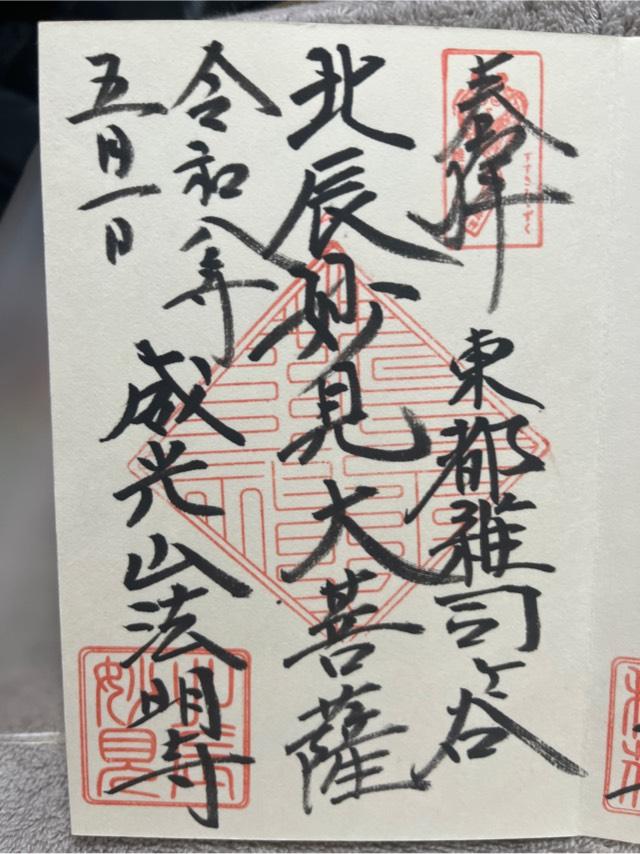 奉拝
東都雑司ヶ谷
北辰妙見大菩薩
令和八年
五月一日
威光山法明寺